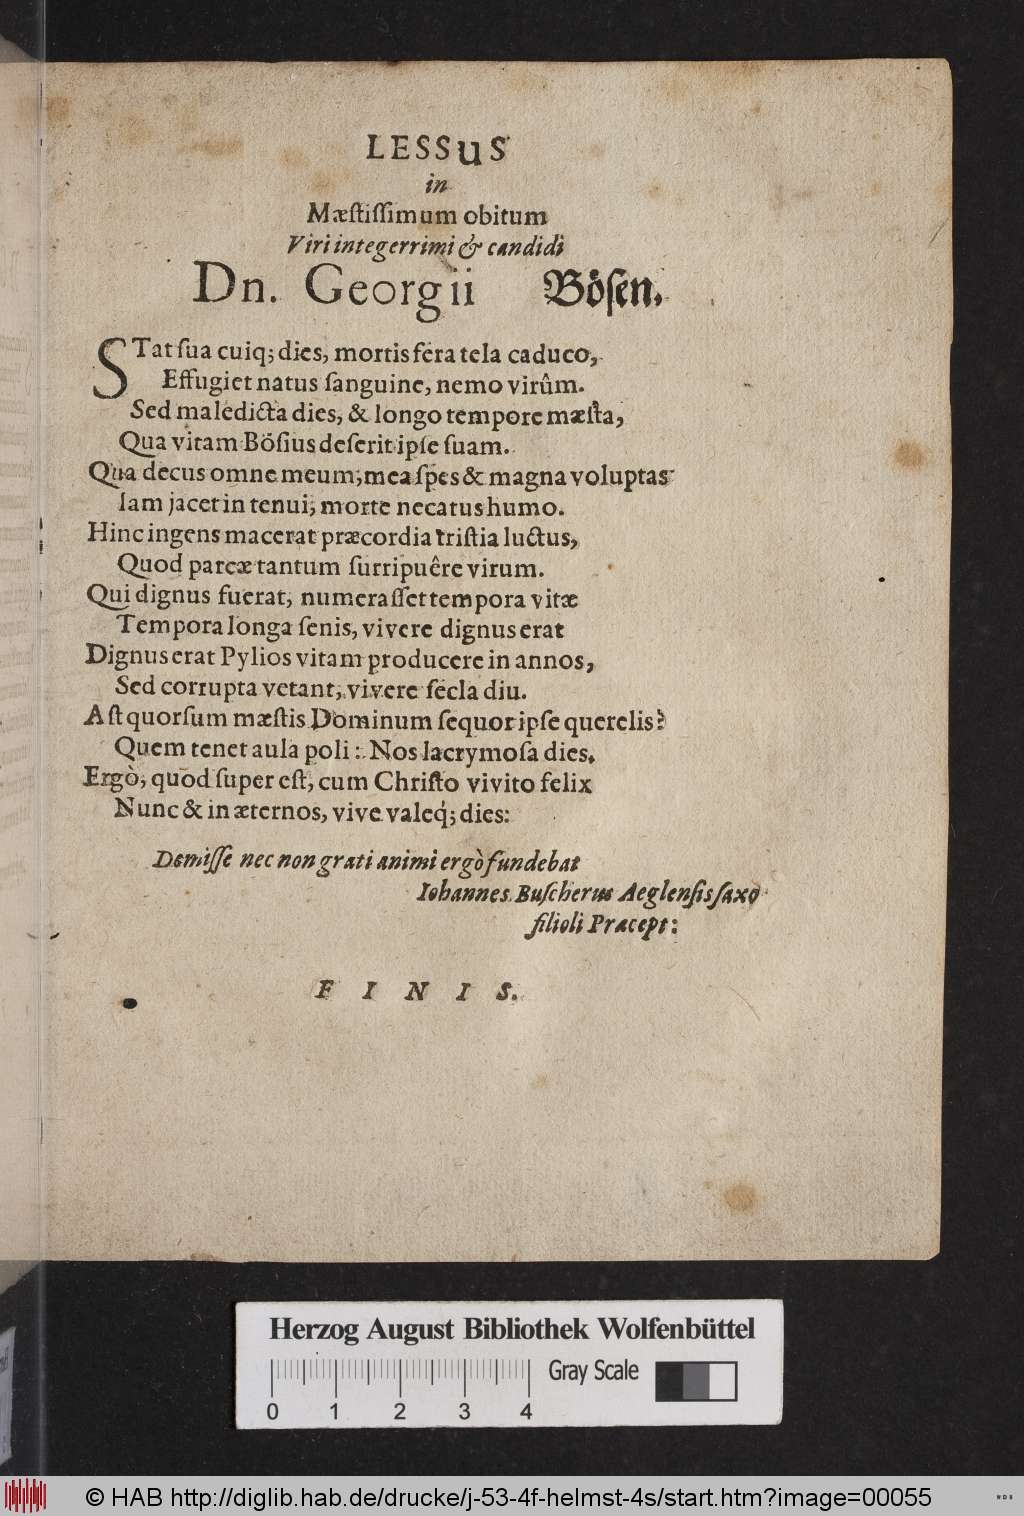 LESSuS
in
Mæstissimum obitum
Viri integerrimi & candidi
Dn. Georgii Bösen.
STat sua cuiq; dies, mortis fera tela caduco,
Effugiet natus sanguine, nemo virûm.
Sed maledicta dies, & longo tempore mæsta,
Qua vitam Bösius deserit ipse suam.
Qua decus omne meum, mea spes & magna voluptas
Iam jacet in tenui, morte necatus humo.
Hinc ingens macerat præcordia tristia luctus,
Quod parcæ tantum surripuêre virum.
Qui dignus fuerat, numerasset tempora vitæ
Tempora longa senis, vivere dignus erat
Dignus erat Pylios vitam producere in annos,
Sed corrupta vetant, vivere secla diu.
Ast quorsum mæstis Dominum sequor ipse querelis?
Quem tenet aula poli: Nos lacrymosa dies.
Ergò, quod super est, cum Christo vivito felix
Nunc & in æternos, vive valeq́; dies:
Demisse nec non grati animi ergò fundebat
Iohannes Buscherus Aeglensis saxo
filioli Præcept:
FINIS.
Herzog August Bibliothek Wolfenbüttel
Gray Scale
0 1 2 3 4
© HAB http://diglib.hab.de/drucke/j-53-4f-helmst-4s/start.htm?image=00055